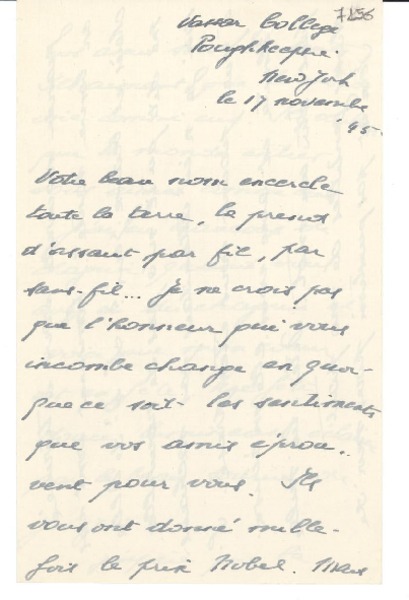 7256
Vassar College
Poughkeepsie.
New York
le 17 novembre
'45.
Votre beau nom encercle
toute la terre, la prend
d'assaut par fil, par
sans-fil... Je ne crois pas
que l'honneur qui vous
incombe change en quoi-
que ce soit les sentiments
que vos amis éprou-
vent pour vous. Ils
vous ont donné mille
fois le prix Nobel. Mais